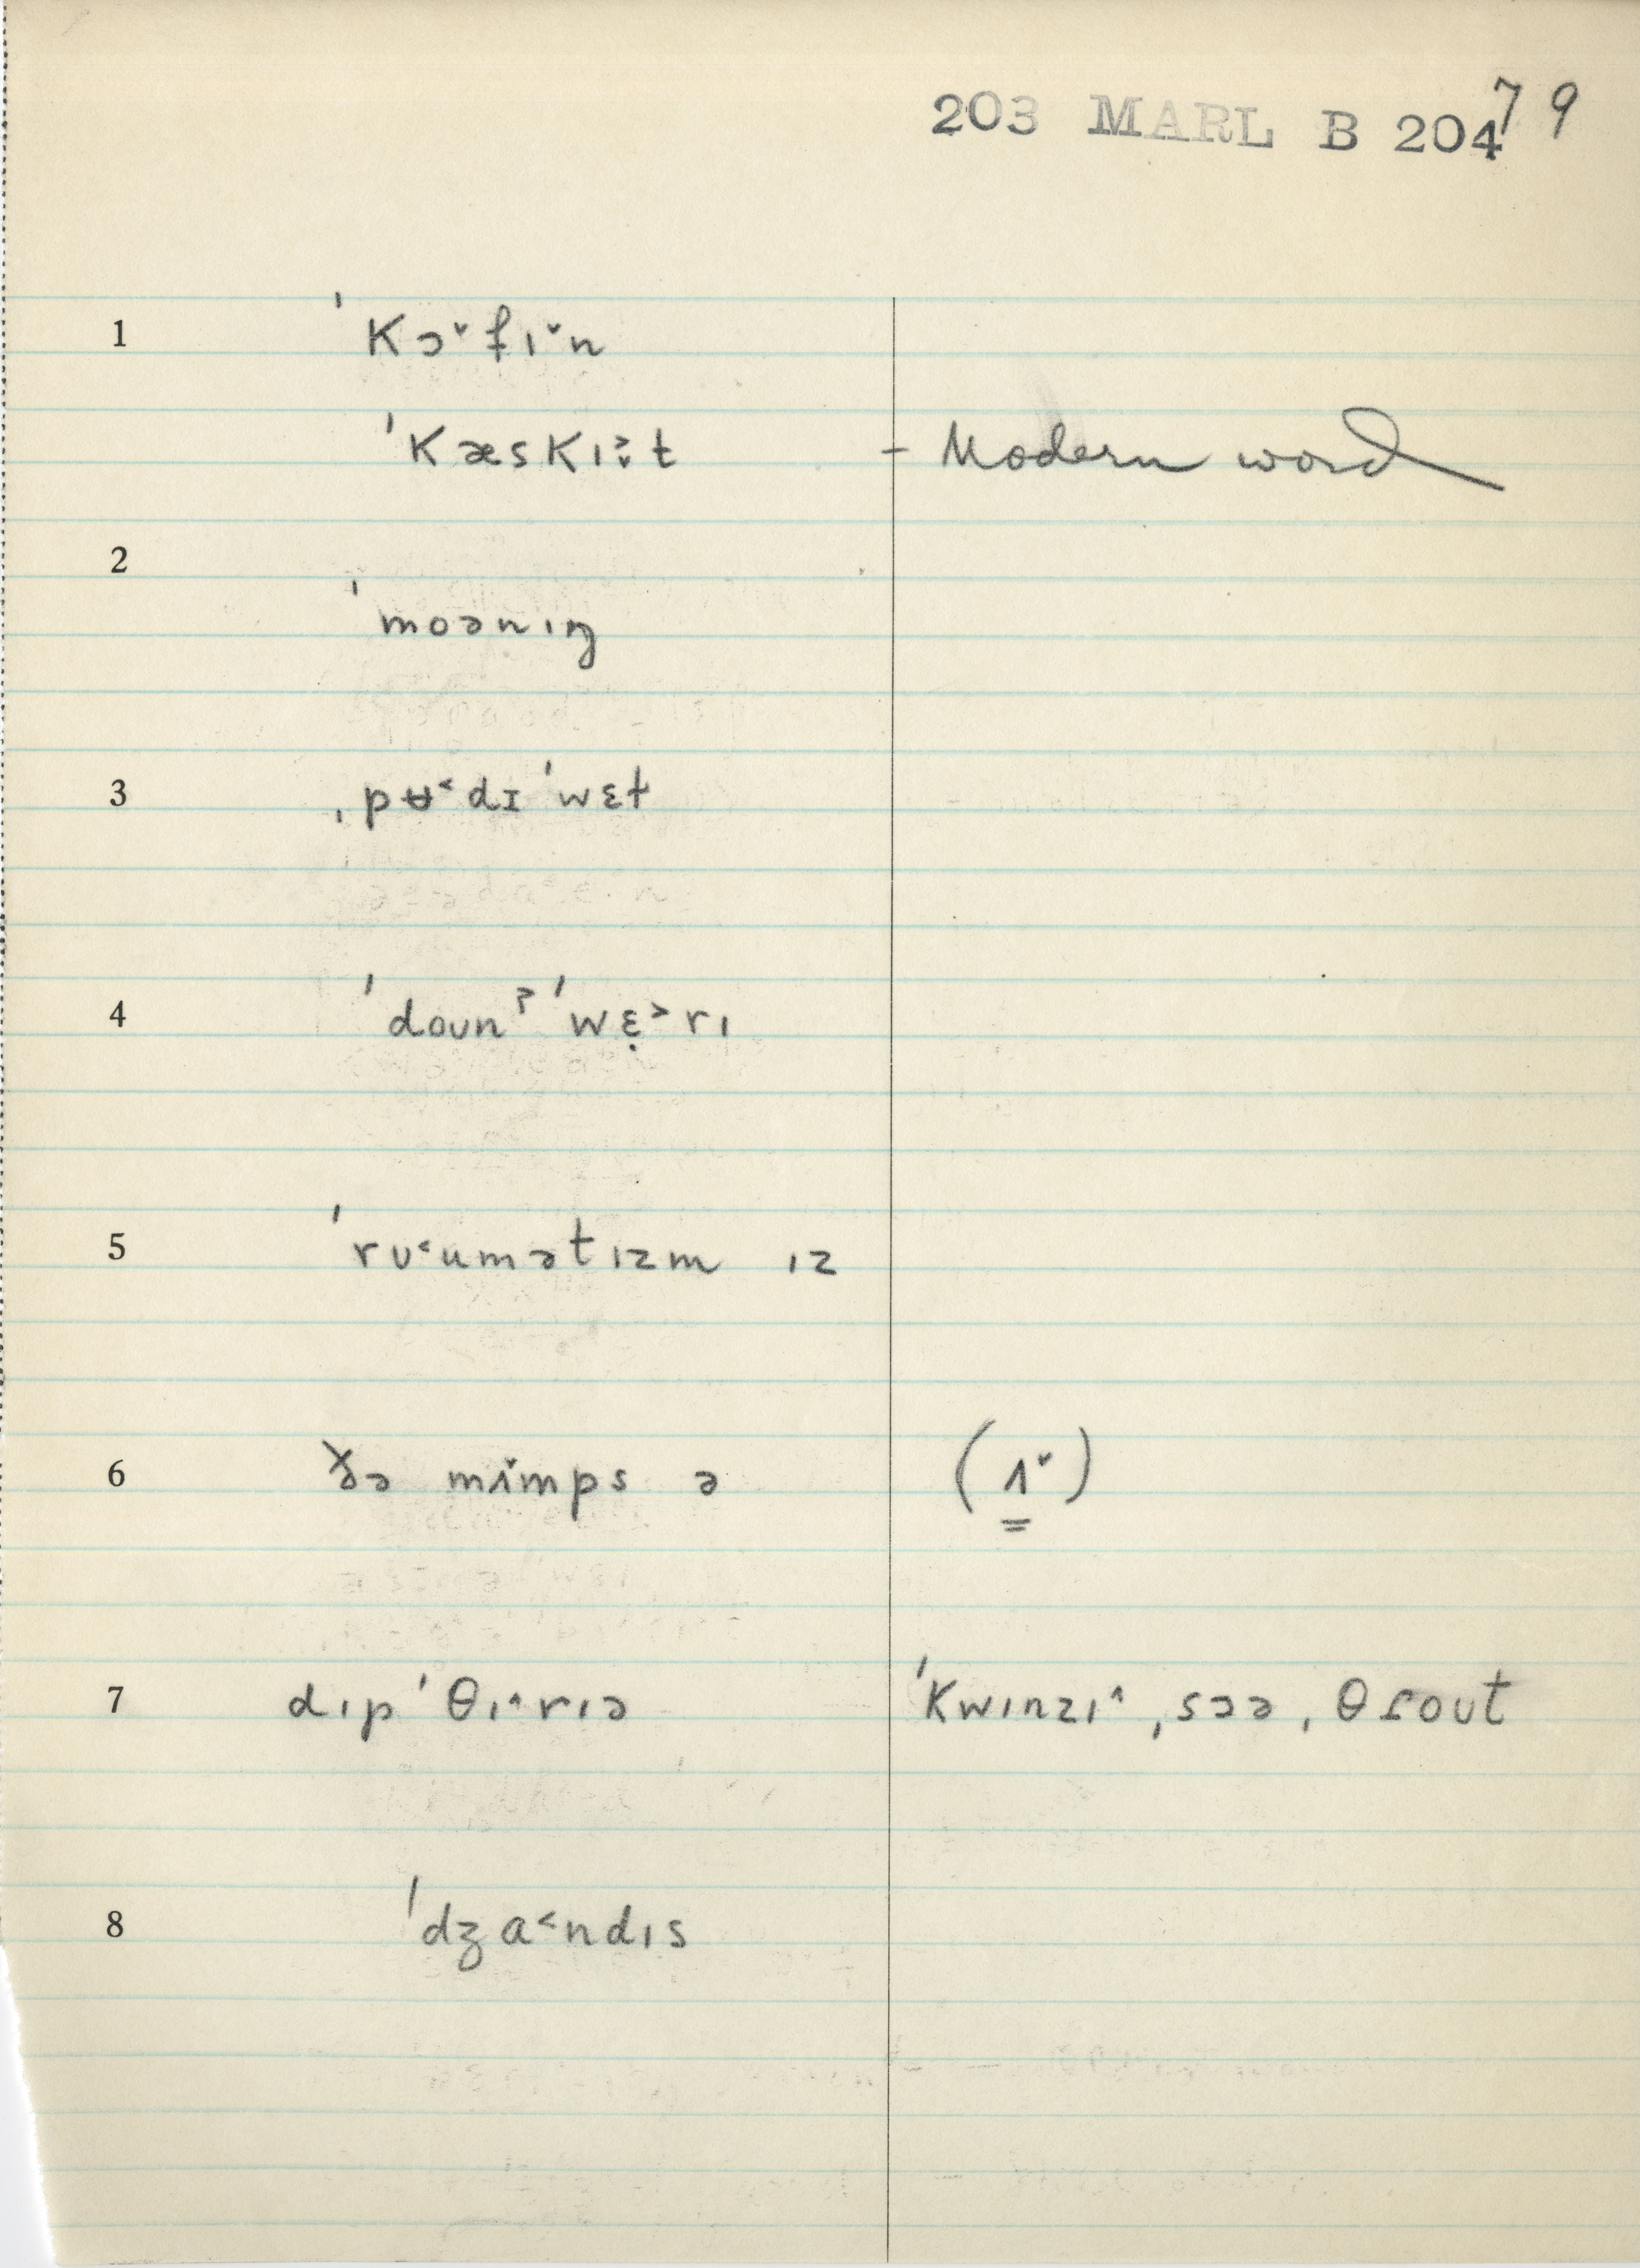 203 MARL B 204 79
1 ˈkɔˇfɪˇn
ˈkæskɪ̬˃t - Modern word
2 ˈmoənɪŋ
3 ˌpʉ˂dɪˈwɛt
4 ˈdoʊnˀ ˈwɛ̣˃rɪ
5 ˈrʊ˂umətɪzm ɪz
6 ðə mɪˇmps ə (ɪˇ)
7 dɪpˈθɪ˄rɪə ˈkwɪnzɪ˄, sɔə, θɾoʊt
8 ˈdʒa˂ndɪs